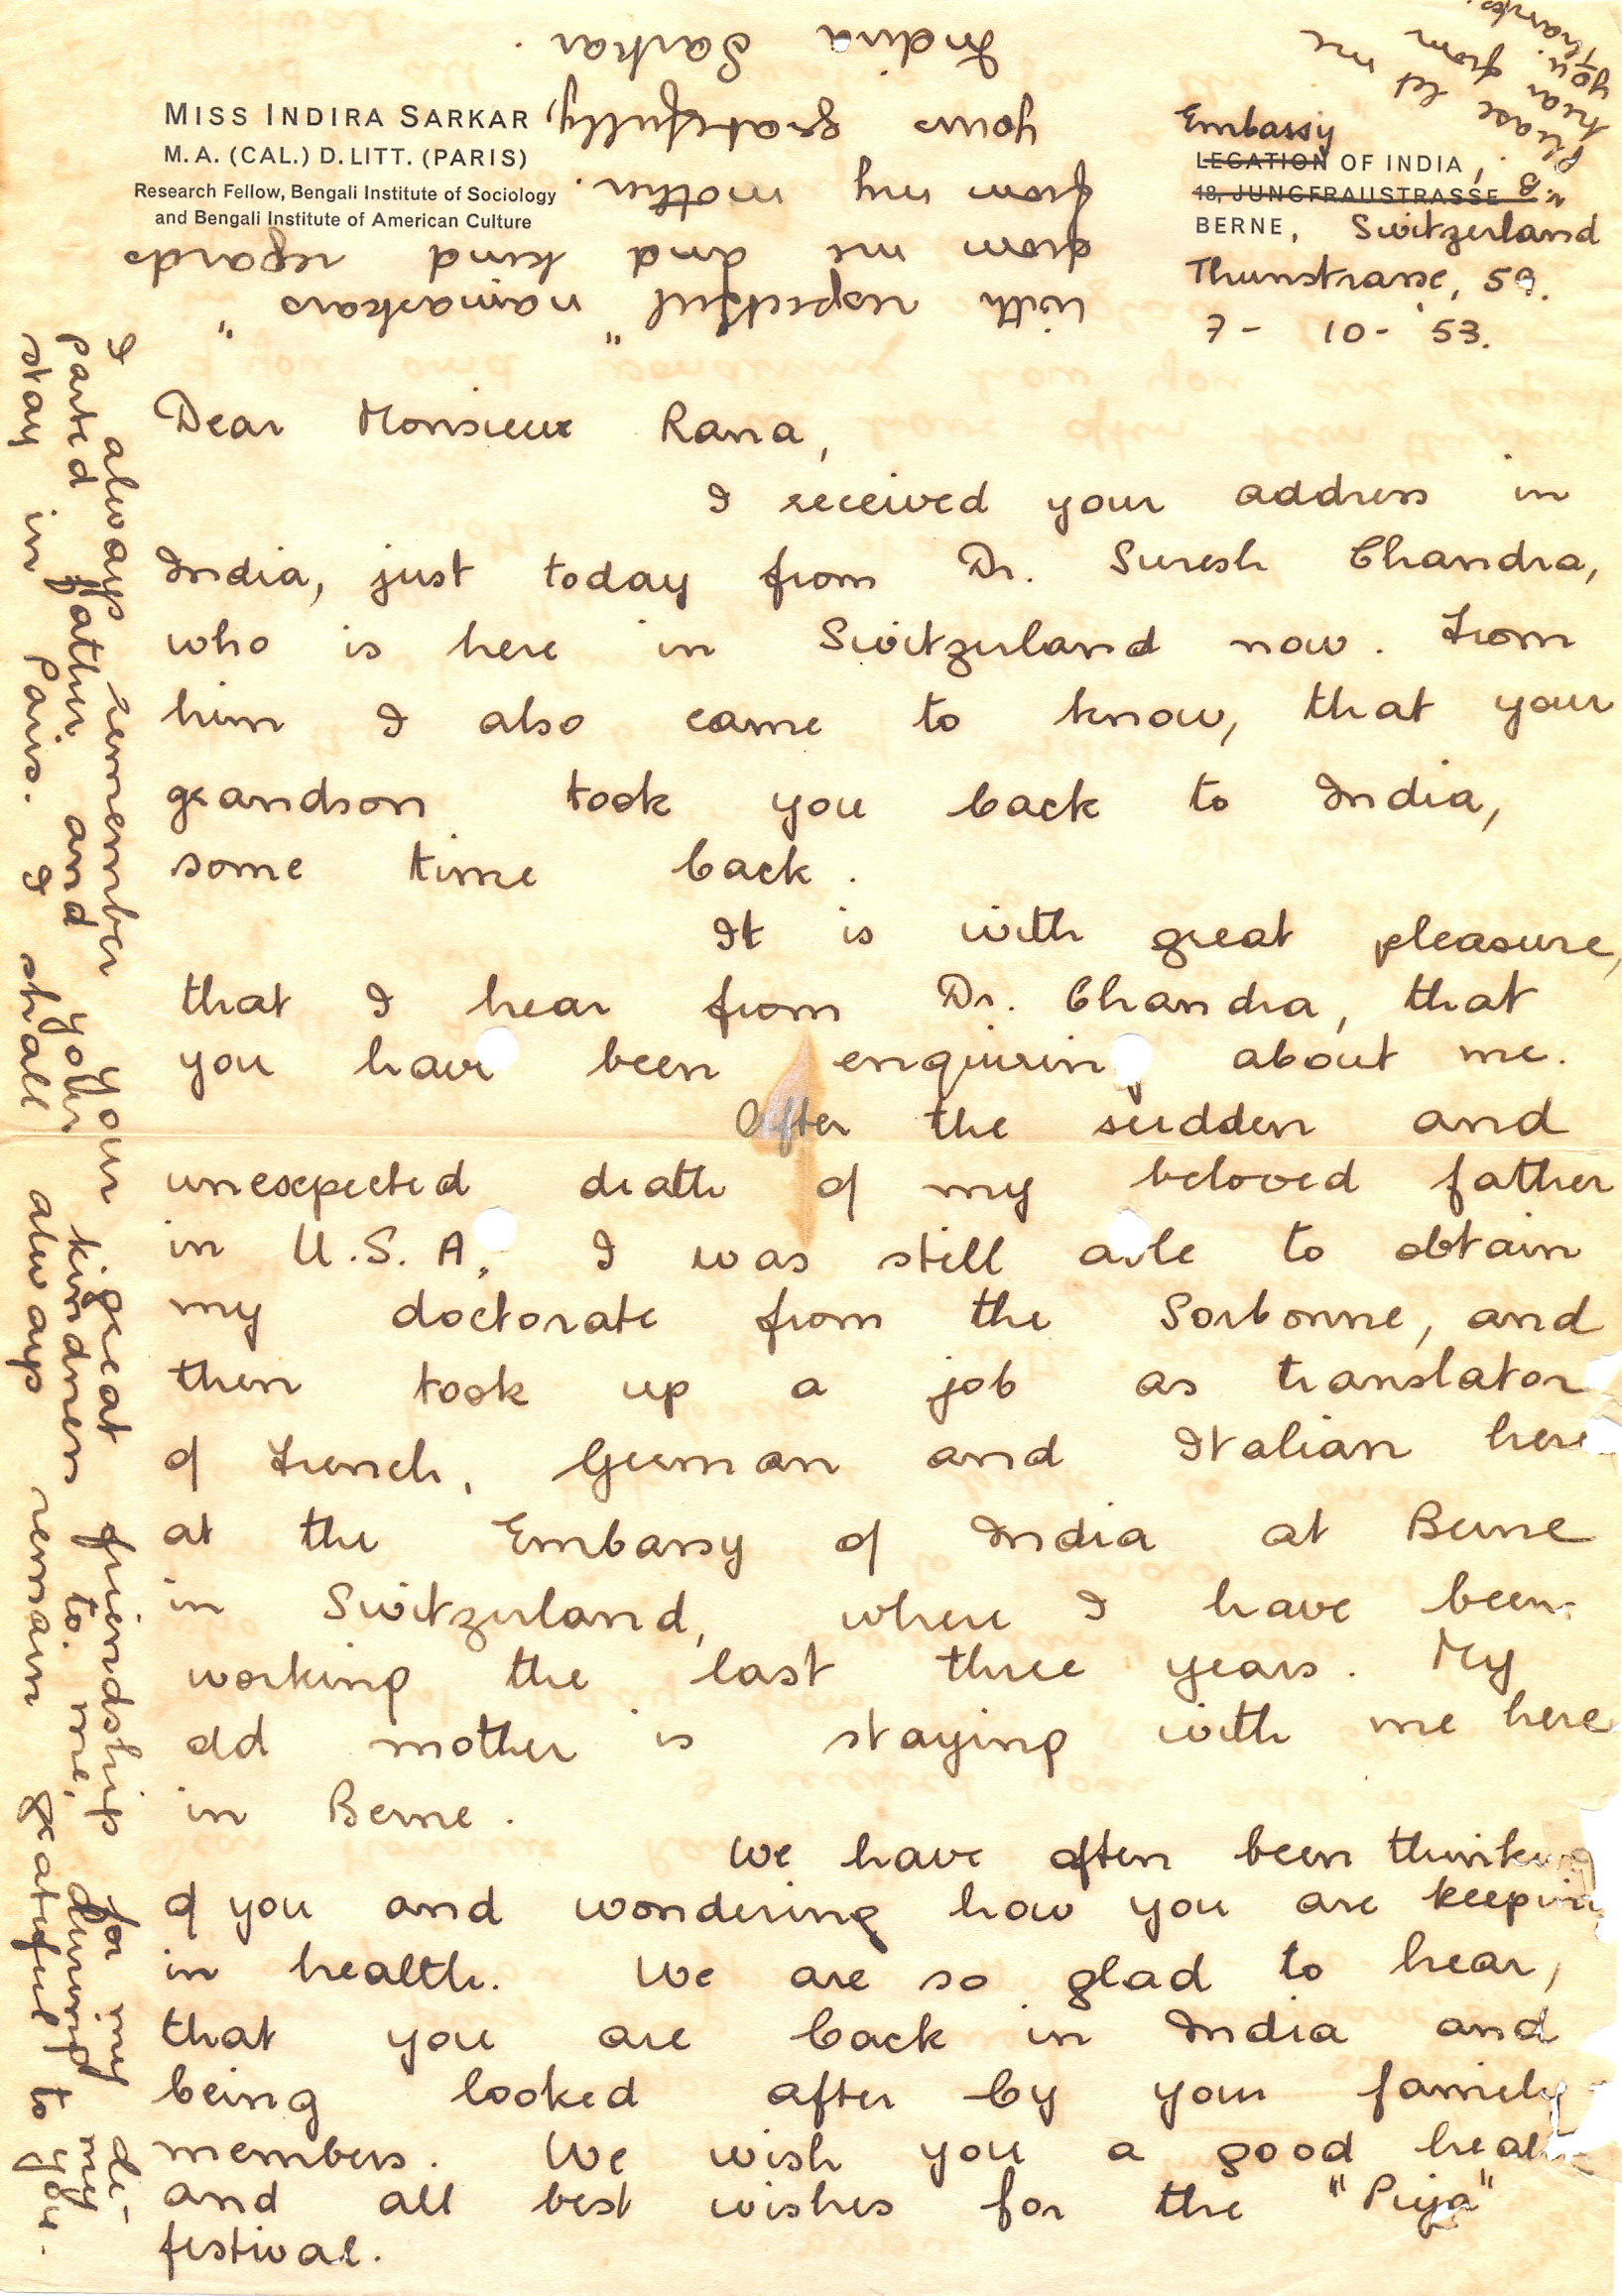 MISS INDIRA SARKAR
M.A. (CAL.) D.LITT. (PARIS)
Research Fellow, Bengali Institute of Sociology
and Bengali Institute of American Culture
Embassy
LEGATION OF INDIA,
18, JUNGFRAUSTRASSE
BERNE, Switzerland
Thunstrasse, 59.
7 - 10 - 53.
Dear Monsieur Rana,
I received your address in
India, just today from Dr. Suresh Chandra,
who is here in Switzerland now. From
him I also came to know, that your
grandson took you back to India,
some time back.
It is with great pleasure,
that I hear from Dr. Chandra, that
you have been enquiring about me.
After the sudden and
unexpected death of my beloved father
in U.S.A, I was still able to obtain
my doctorate from the Sorbonne, and
then took up a job as translator
of French, German and Italian here
at the Embassy of India at Berne
in Switzerland, where I have been
working the last three years. My
old mother is staying with me here
in Berne.
We have often been thinking
of you and wondering how you are keeping
in health. We are so glad to hear,
that you are back in India and
being looked after by your family
members. We wish you a good health
and all best wishes for the "Puja"
festival.
I always remember your great friendship for my de-
parted father and your kindness to me, during my
stay in Paris. I shall always remain grateful to you.
With respectful "namaskars"
from me and kind regards
from my mother.
Yours gratefully,
Indira Sarkar.
N.B. Please let me
hear from
you.
Thanks.